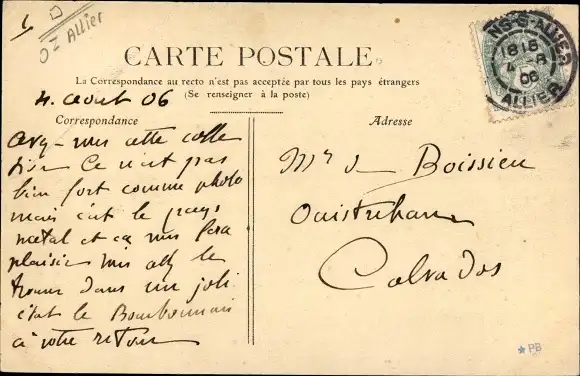 03 Allier
CARTE POSTALE
La Correspondance au recto n'est pas acceptée par tous les pays étrangers
(Se renseigner à la poste)
4. aout 06
Correspondance
Avez-vous cette colle
Ce n'est pas
bien fort comme photo
mais c'est le pays
natal et ça vous fera
plaisir vous allez le
trouver dans un joli
état le Bourbonnais
à votre retour
Adresse
Mr de Boissieu
Ouistreham
Calvados
NS-S-ALLIER
1815
4-8
06
ALLIER
PB